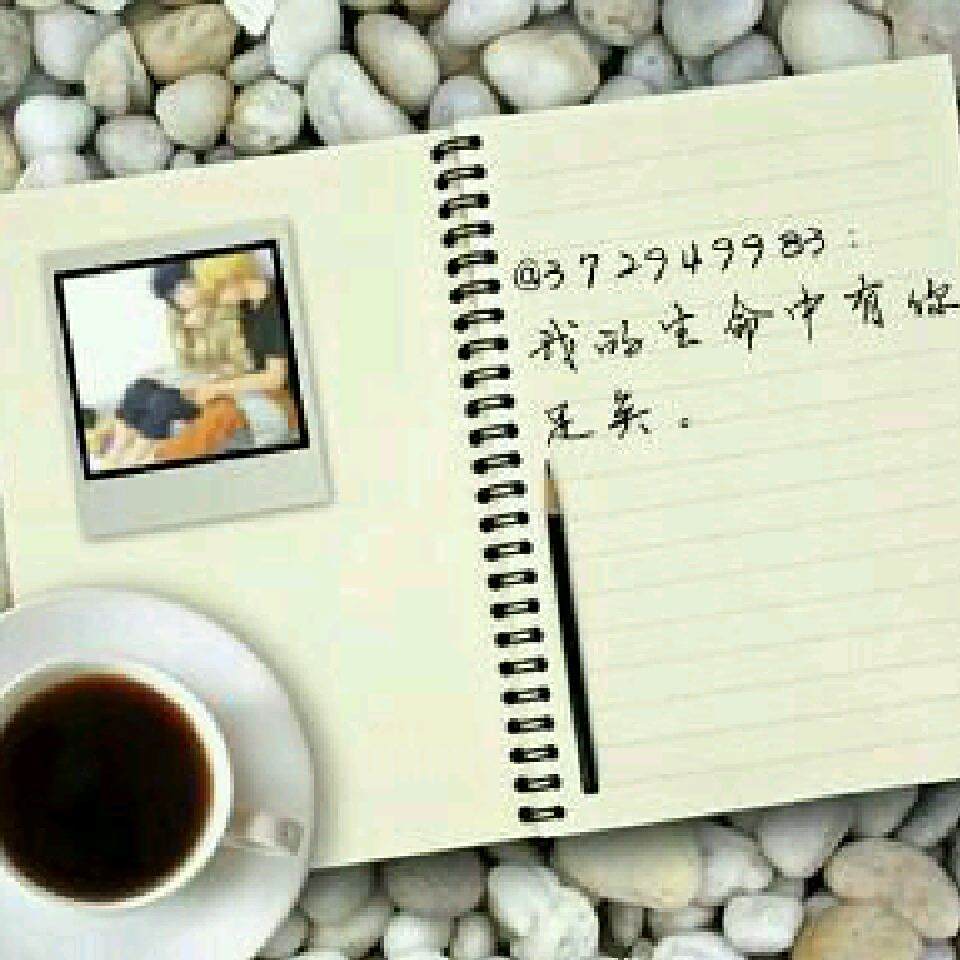 @372949983：
我的生命中有你
足矣。